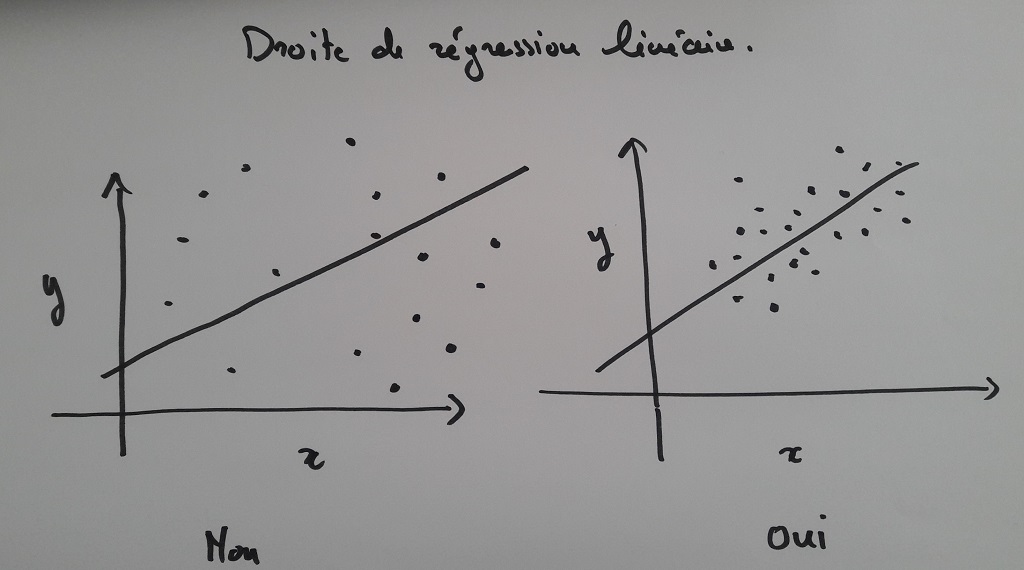 Droite de régression linéaire.
y
y
x
x
Non
Oui